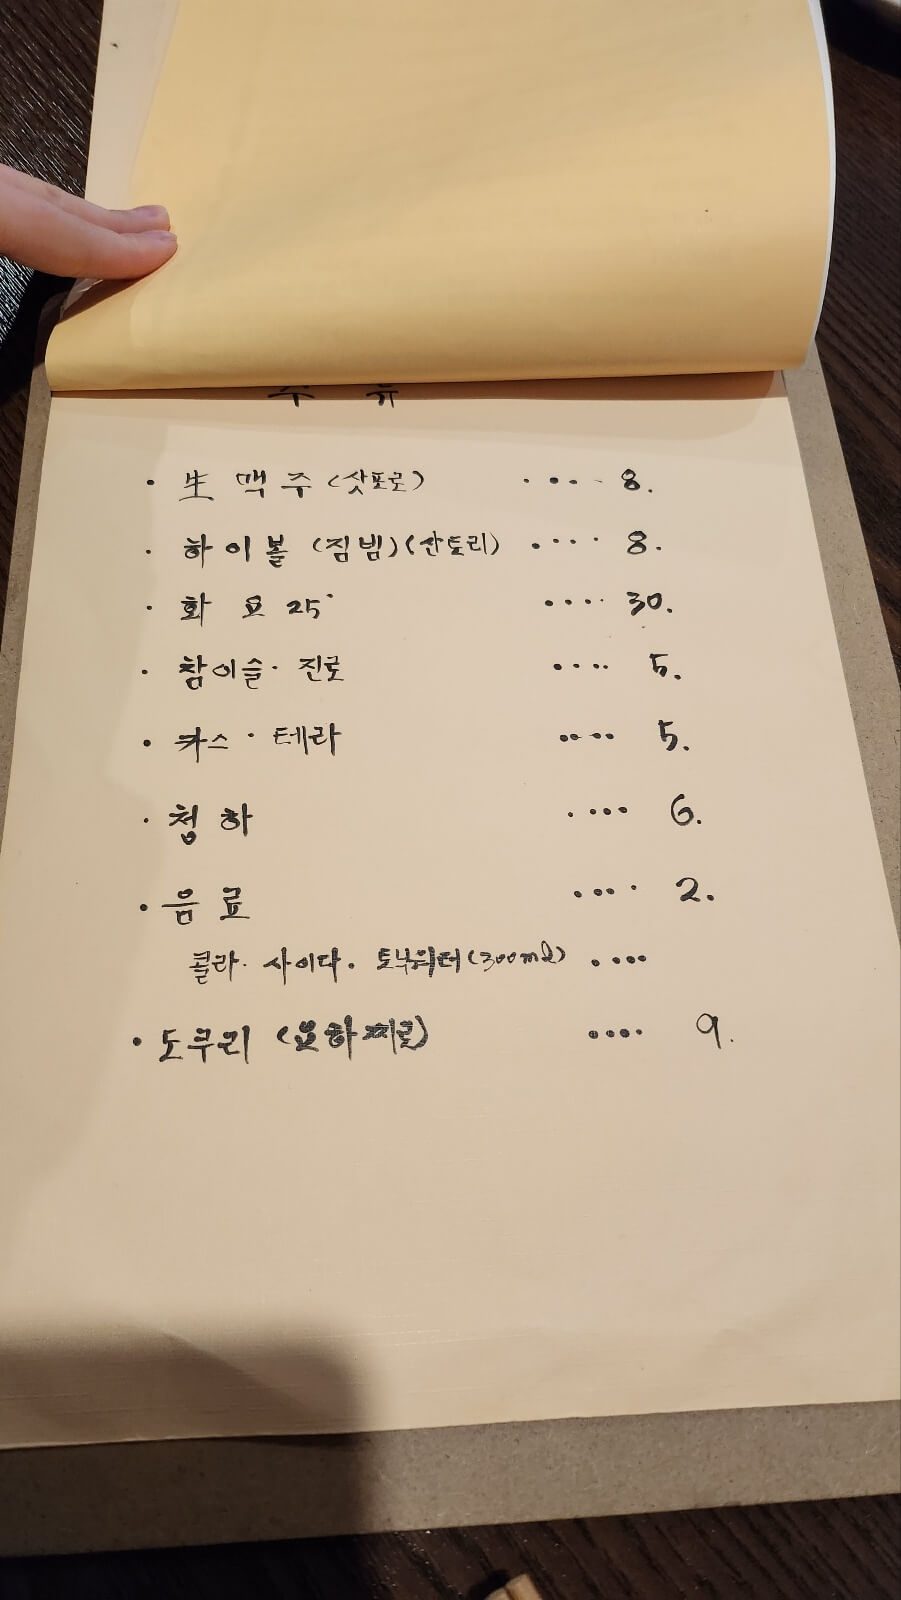 주 류
· 生 맥 주 (삿포로) .... 8.
· 하 이 볼 (짐빔)(산토리) .... 8.
· 화 요 25° .... 30.
· 참이슬 · 진로 .... 5.
· 카스 · 테라 .... 5.
· 청 하 .... 6.
· 음 료 .... 2.
콜라 · 사이다 · 토닉워터(300ml) ....
· 도쿠리 (요하찌로) .... 9.